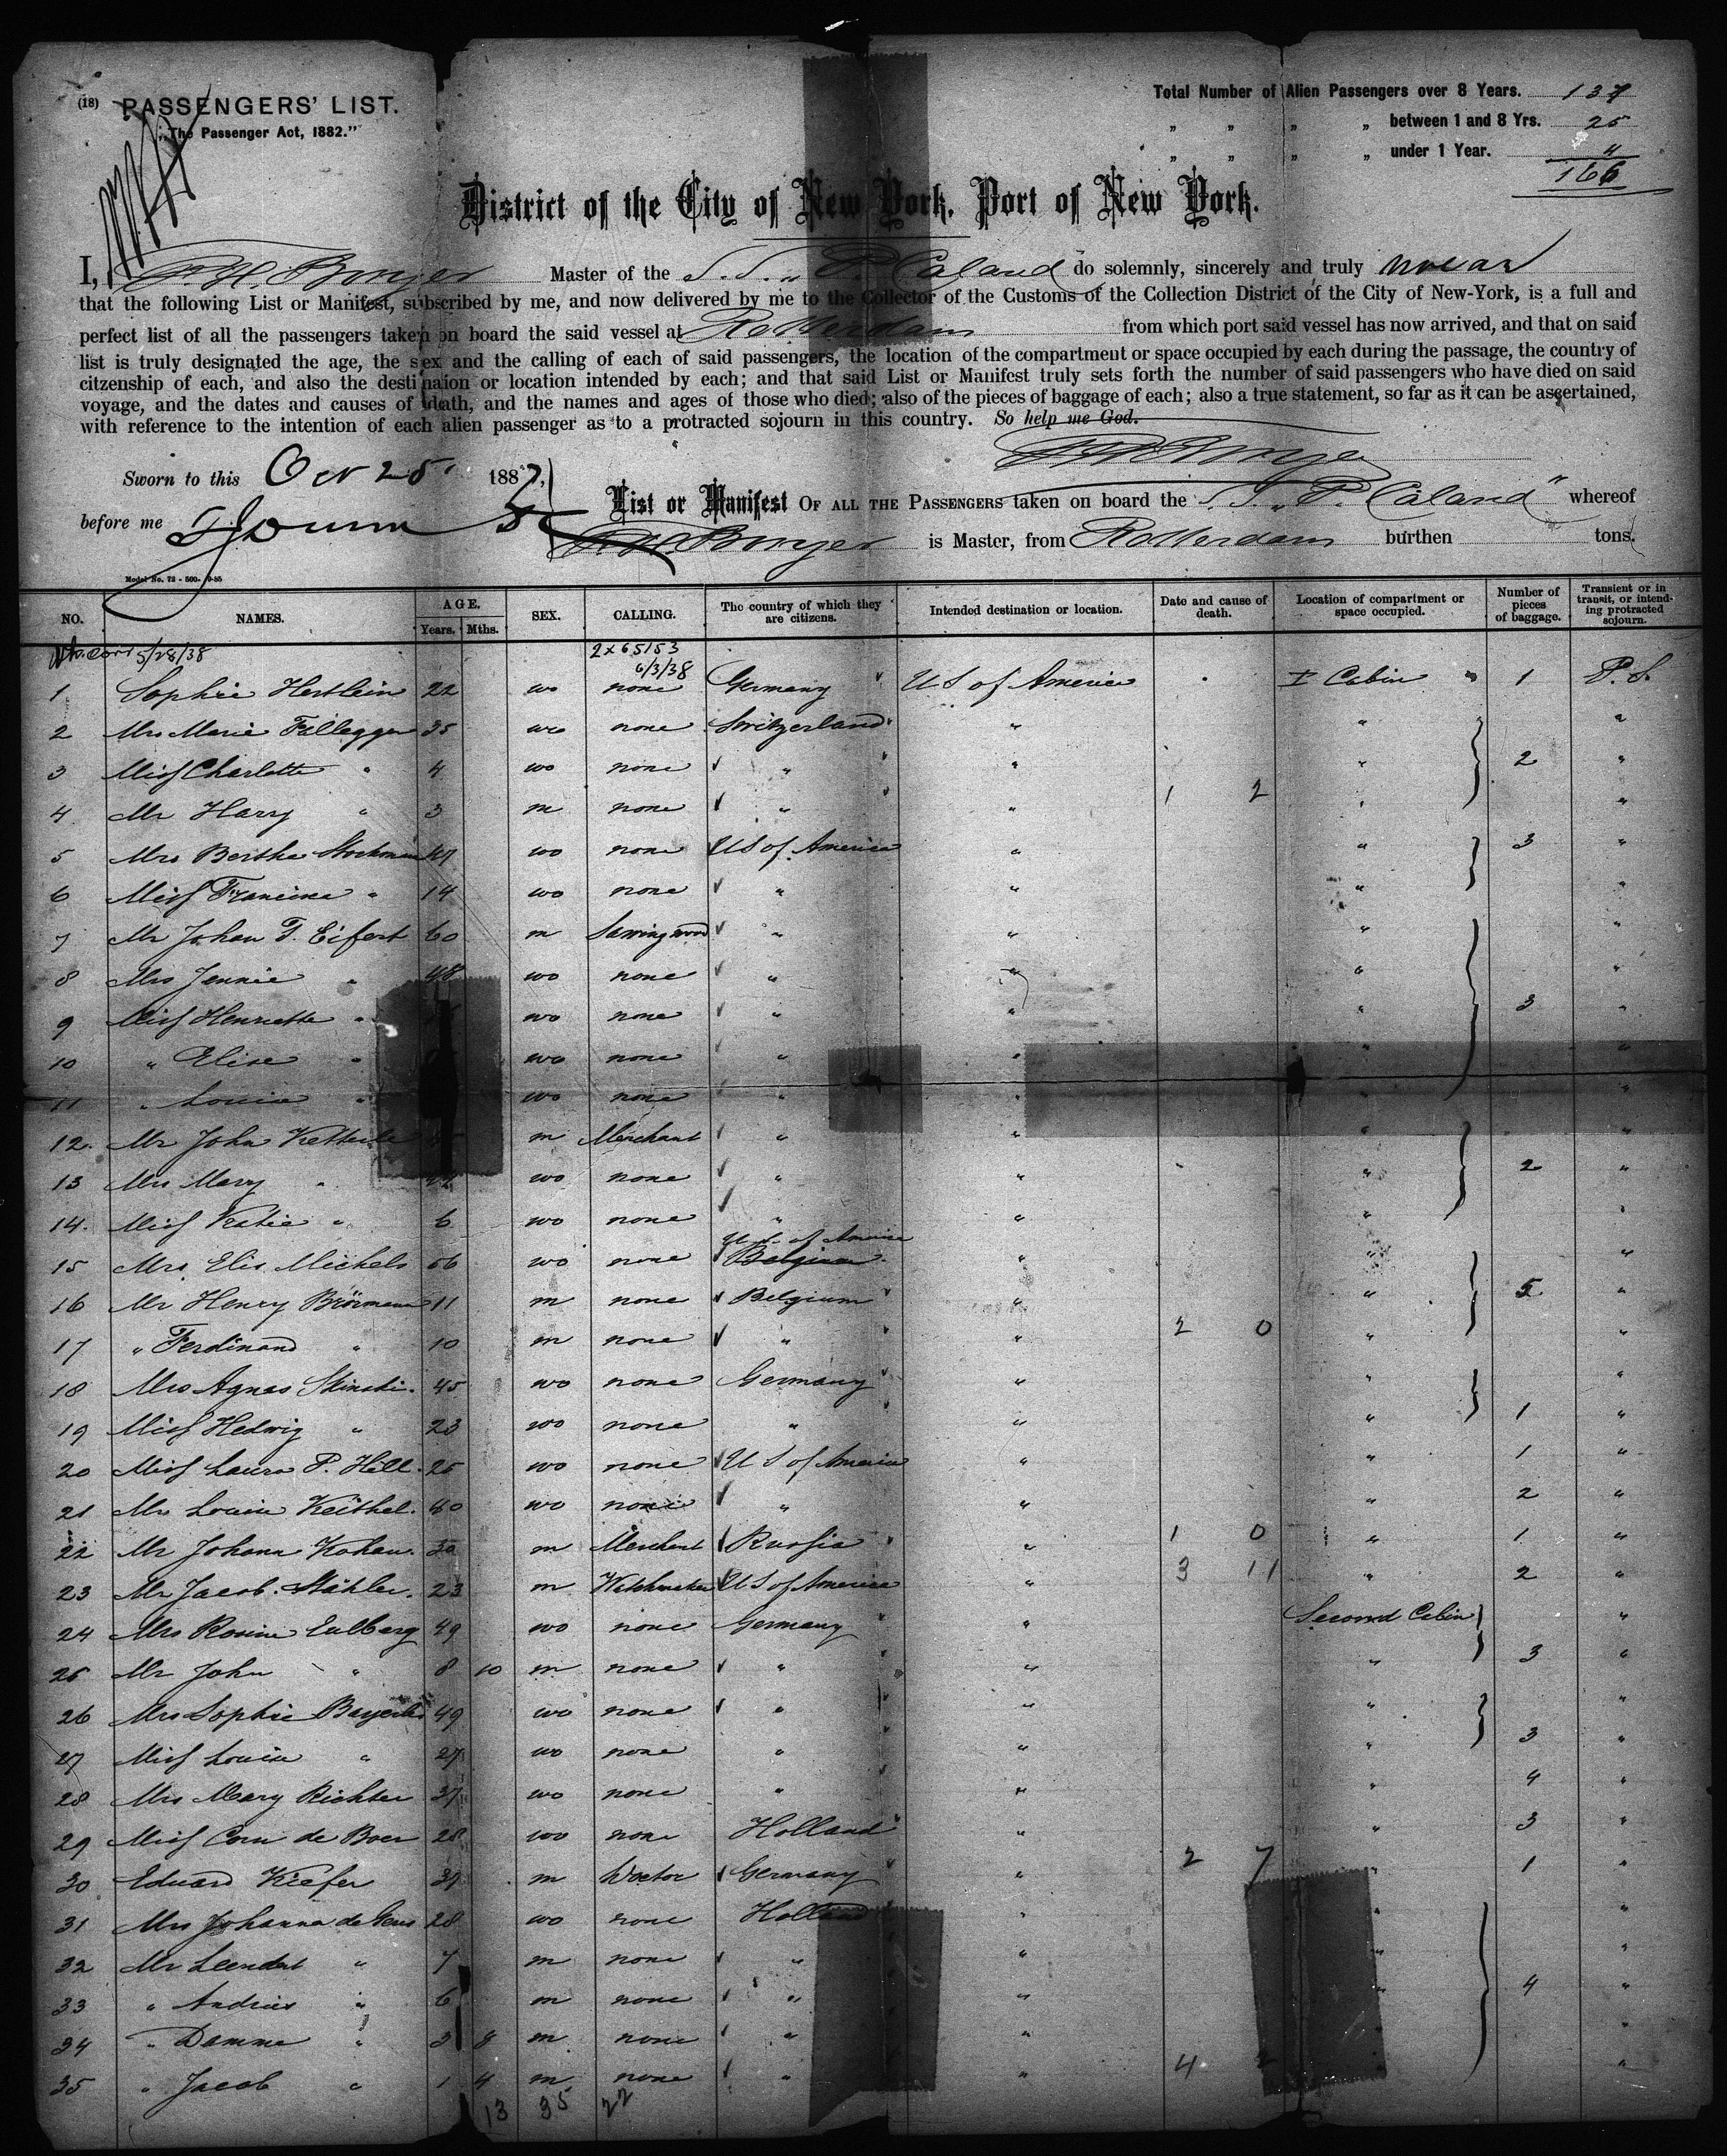 (18) PASSENGERS' LIST.
„The Passenger Act, 1882.”
Total Number of Alien Passengers over 8 Years. 137
„ „ „ „ between 1 and 8 Yrs. 25
„ „ „ „ under 1 Year. 4
166
District of the City of New York, Port of New York.
I, Master of the S.S. „P. Caland” do solemnly, sincerely and truly swear
that the following List or Manifest, subscribed by me, and now delivered by me to the Collector of the Customs of the Collection District of the City of New-York, is a full and
perfect list of all the passengers taken on board the said vessel at Rotterdam from which port said vessel has now arrived, and that on said
list is truly designated the age, the sex and the calling of each of said passengers, the location of the compartment or space occupied by each during the passage, the country of
citzenship of each, and also the destinaion or location intended by each; and that said List or Manifest truly sets forth the number of said passengers who have died on said
voyage, and the dates and causes of death, and the names and ages of those who died; also of the pieces of baggage of each; also a true statement, so far as it can be ascertained,
with reference to the intention of each alien passenger as to a protracted sojourn in this country. So help me God.
Sworn to this Oct 25 1887,
before me
List or Manifest OF ALL THE PASSENGERS taken on board the S.S. „P. Caland” whereof
is Master, from Rotterdam burthen tons.
Model No. 72 - 500- 9-85
NO. NAMES. AGE. Years. Mths. SEX. CALLING. The country of which they are citizens. Intended destination or location. Date and cause of death. Location of compartment or space occupied. Number of pieces of baggage. Transient or in transit, or intending protracted sojourn.
5/28/38 2x65153
6/3/38
1 Sophie Hertlein 22 wo none Germany US of America I Cabin 1 P.S.
2 Mrs Marie Fellegger 35 wo none Switzerland " " "
3 Miss Charlotte " 4 wo none " " " 2 "
4 Mr Harry " 3 m none " " 1 2 " "
5 Mrs Bertha 47 wo none US of America " " 3 "
6 Miss Francine " 14 wo none " " " "
7 Mr Johan T. Eifert 60 m Sawing wood " " " "
8 Mrs Jennie " 48 wo none " " " "
9 Miss Henriette " wo none " " " 3 "
10 " Elise " wo none " " " "
11 " Louise " wo none " " " "
12. Mr John m Merchant " " " "
13 Mrs Mary " wo none " " " 2 "
14. Miss Katie " 6 wo none " " " "
U.S. of America
15 Mrs Elis Michels 56 wo none Belgium " " "
16 Mr Henry Brörmann 11 m none Belgium " " 5 "
17 " Ferdinand " 10 m none " " 2 0 " "
18 Mrs Agnes Skinski. 45 wo none Germany " " "
19 Miss Hedwig " 23 wo none " " " 1 "
20 Miss Laura P. Hill. 25 wo none US of America " " 1 "
21 Mrs Louise Keithel. 40 wo none " " " 2 "
22 Mr Johann Kohan. 30 m Merchant Russia " 1 0 " 1 "
23 Mr Jacob Stähler. 23 m Watchmaker US of America " 3 11 " 2 "
24 Mrs Rosine Eulberg 49 wo none Germany " Second Cabin "
25 Mr John " 8 10 m none " " " 3 "
26 Mrs Sophie 49 wo none " " " "
27 Miss Louise " 27 wo none " " " 3 "
28 Mrs Mary Richter 37 wo none " " " 4 "
29 Miss Corn de Boer 28 wo none Holland " " 3 "
30 Eduard Kiefer 39 m Doctor Germany " 2 7 " 1 "
31 Mrs Johanna de 28 wo none Holland " " "
32 Mr Leendert " 7 m none " " " "
33 " Andries " 6 m none " " " 4 "
34 " Damme " 3 8 m none " " " "
35 " Jacob " 1 4 m none " " 4 " "
13 35 22